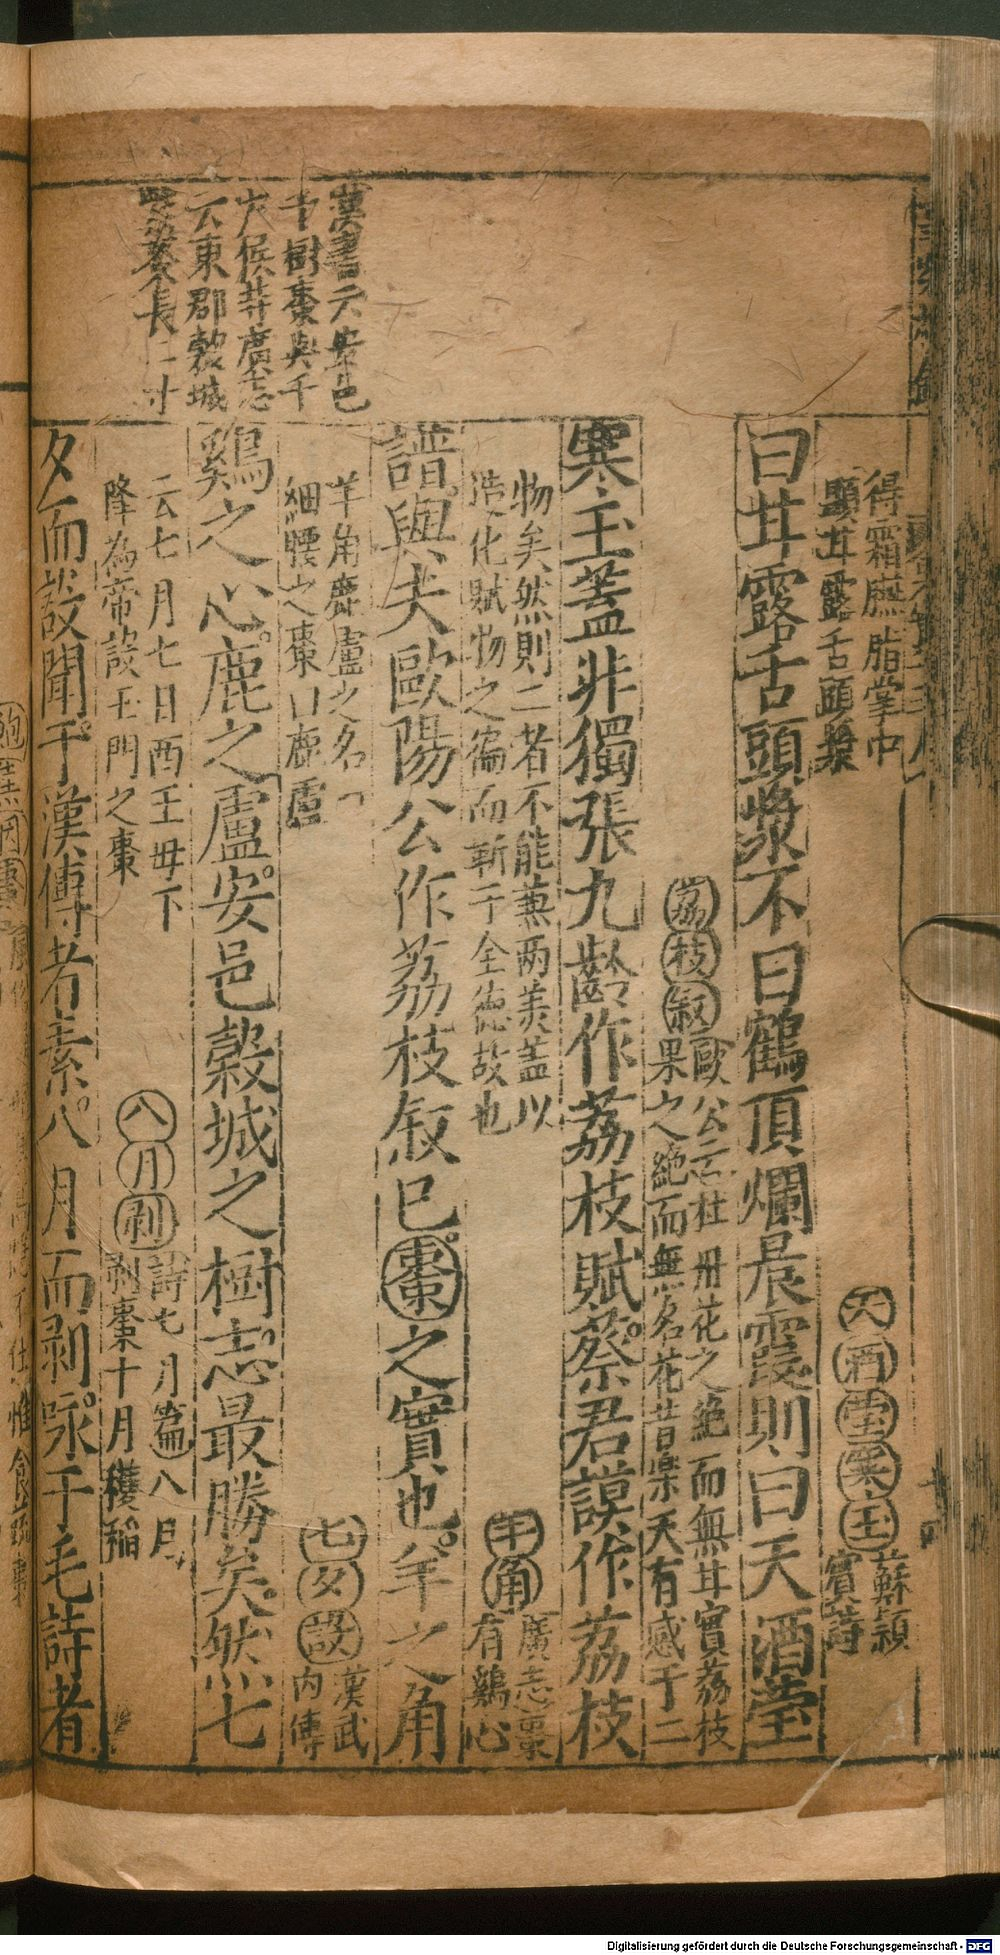 漢書云安邑
千樹棗與千
戶侯等廣志
云東郡穀城
紫棗長二寸
得霜臙脂掌中
顯甘露舌頭漿
天酒瑩寒玉
蘇潁
賓詩
曰甘露舌頭漿不曰鶴頂爛晨霞則曰天酒瑩
荔枝叙
歐公云牡丹花之絕而無甘實荔枝
果之絕而無名花昔樂天有感于二
寒玉蓋非獨張九齡作荔枝賦蔡君謨作荔枝
物矣然則二者不能兼两美盖以
造化賦物之徧而靳于全德故也
羊角
廣志棗
有鷄心
譜與夫歐陽公作荔枝叙已棗之實也羊之角
羊角鹿盧之名
細腰之棗曰鹿盧
七夕設
漢武
内傳
鷄之心鹿之盧安邑穀城之樹志最勝矣然七
云七月七日西王母下
降為帝設玉門之棗
八月剥
詩七月篇八月
剥棗十月穫稲
夕而設聞于漢傳者素八月而剥咏于毛詩者
Digitalisierung gefördert durch die Deutsche Forschungsgemeinschaft - DFG